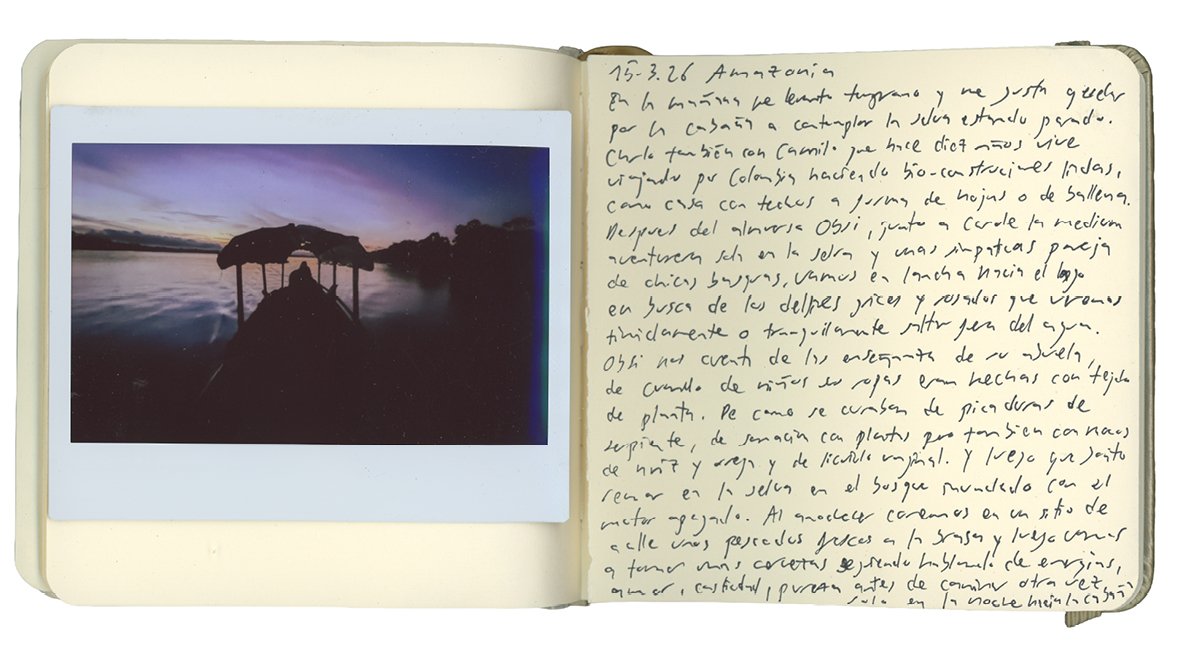 15-3.26 Amazonia
En la mañana me levanto temprano y me gusta quedar
por la cabaña a contemplar la selva estando parado.
Charlo también con Camilo que hace diez años vive
viajando por Colombia haciendo bio-construciones lindas,
como casa con techos a forma de hojas o de ballena.
Despues del almuerzo Obsi, junto a Carole la
aventurera sola en la selva y unas simpaticas pareja
de chicas bascas, vamos en lancha hacia el lago
en busca de los delfines grices y rosados que vivemos
timidamente o tranquilamente saltar fuera del agua.
Obsi nos cuenta de las enseñanza de su abuela,
de cuando de niños su ropas eran hechas con tejido
de planta. De como se curaban de picaduras de
serpiente, de sanación con plantas pero también con mocos
de nariz y oreja y de liquido vaginal. Y luego que
remar en la selva en el bosque inundado con el
motor apagado. Al anochecer cenamos en un sitio de
calle unos pescados frescos a la brasa y luego vamos
a tomar unas cervetas seguiendo hablando de energias,
amor, castidad, pureza antes de caminar otra vez
solo en la noche hacia la cabaña